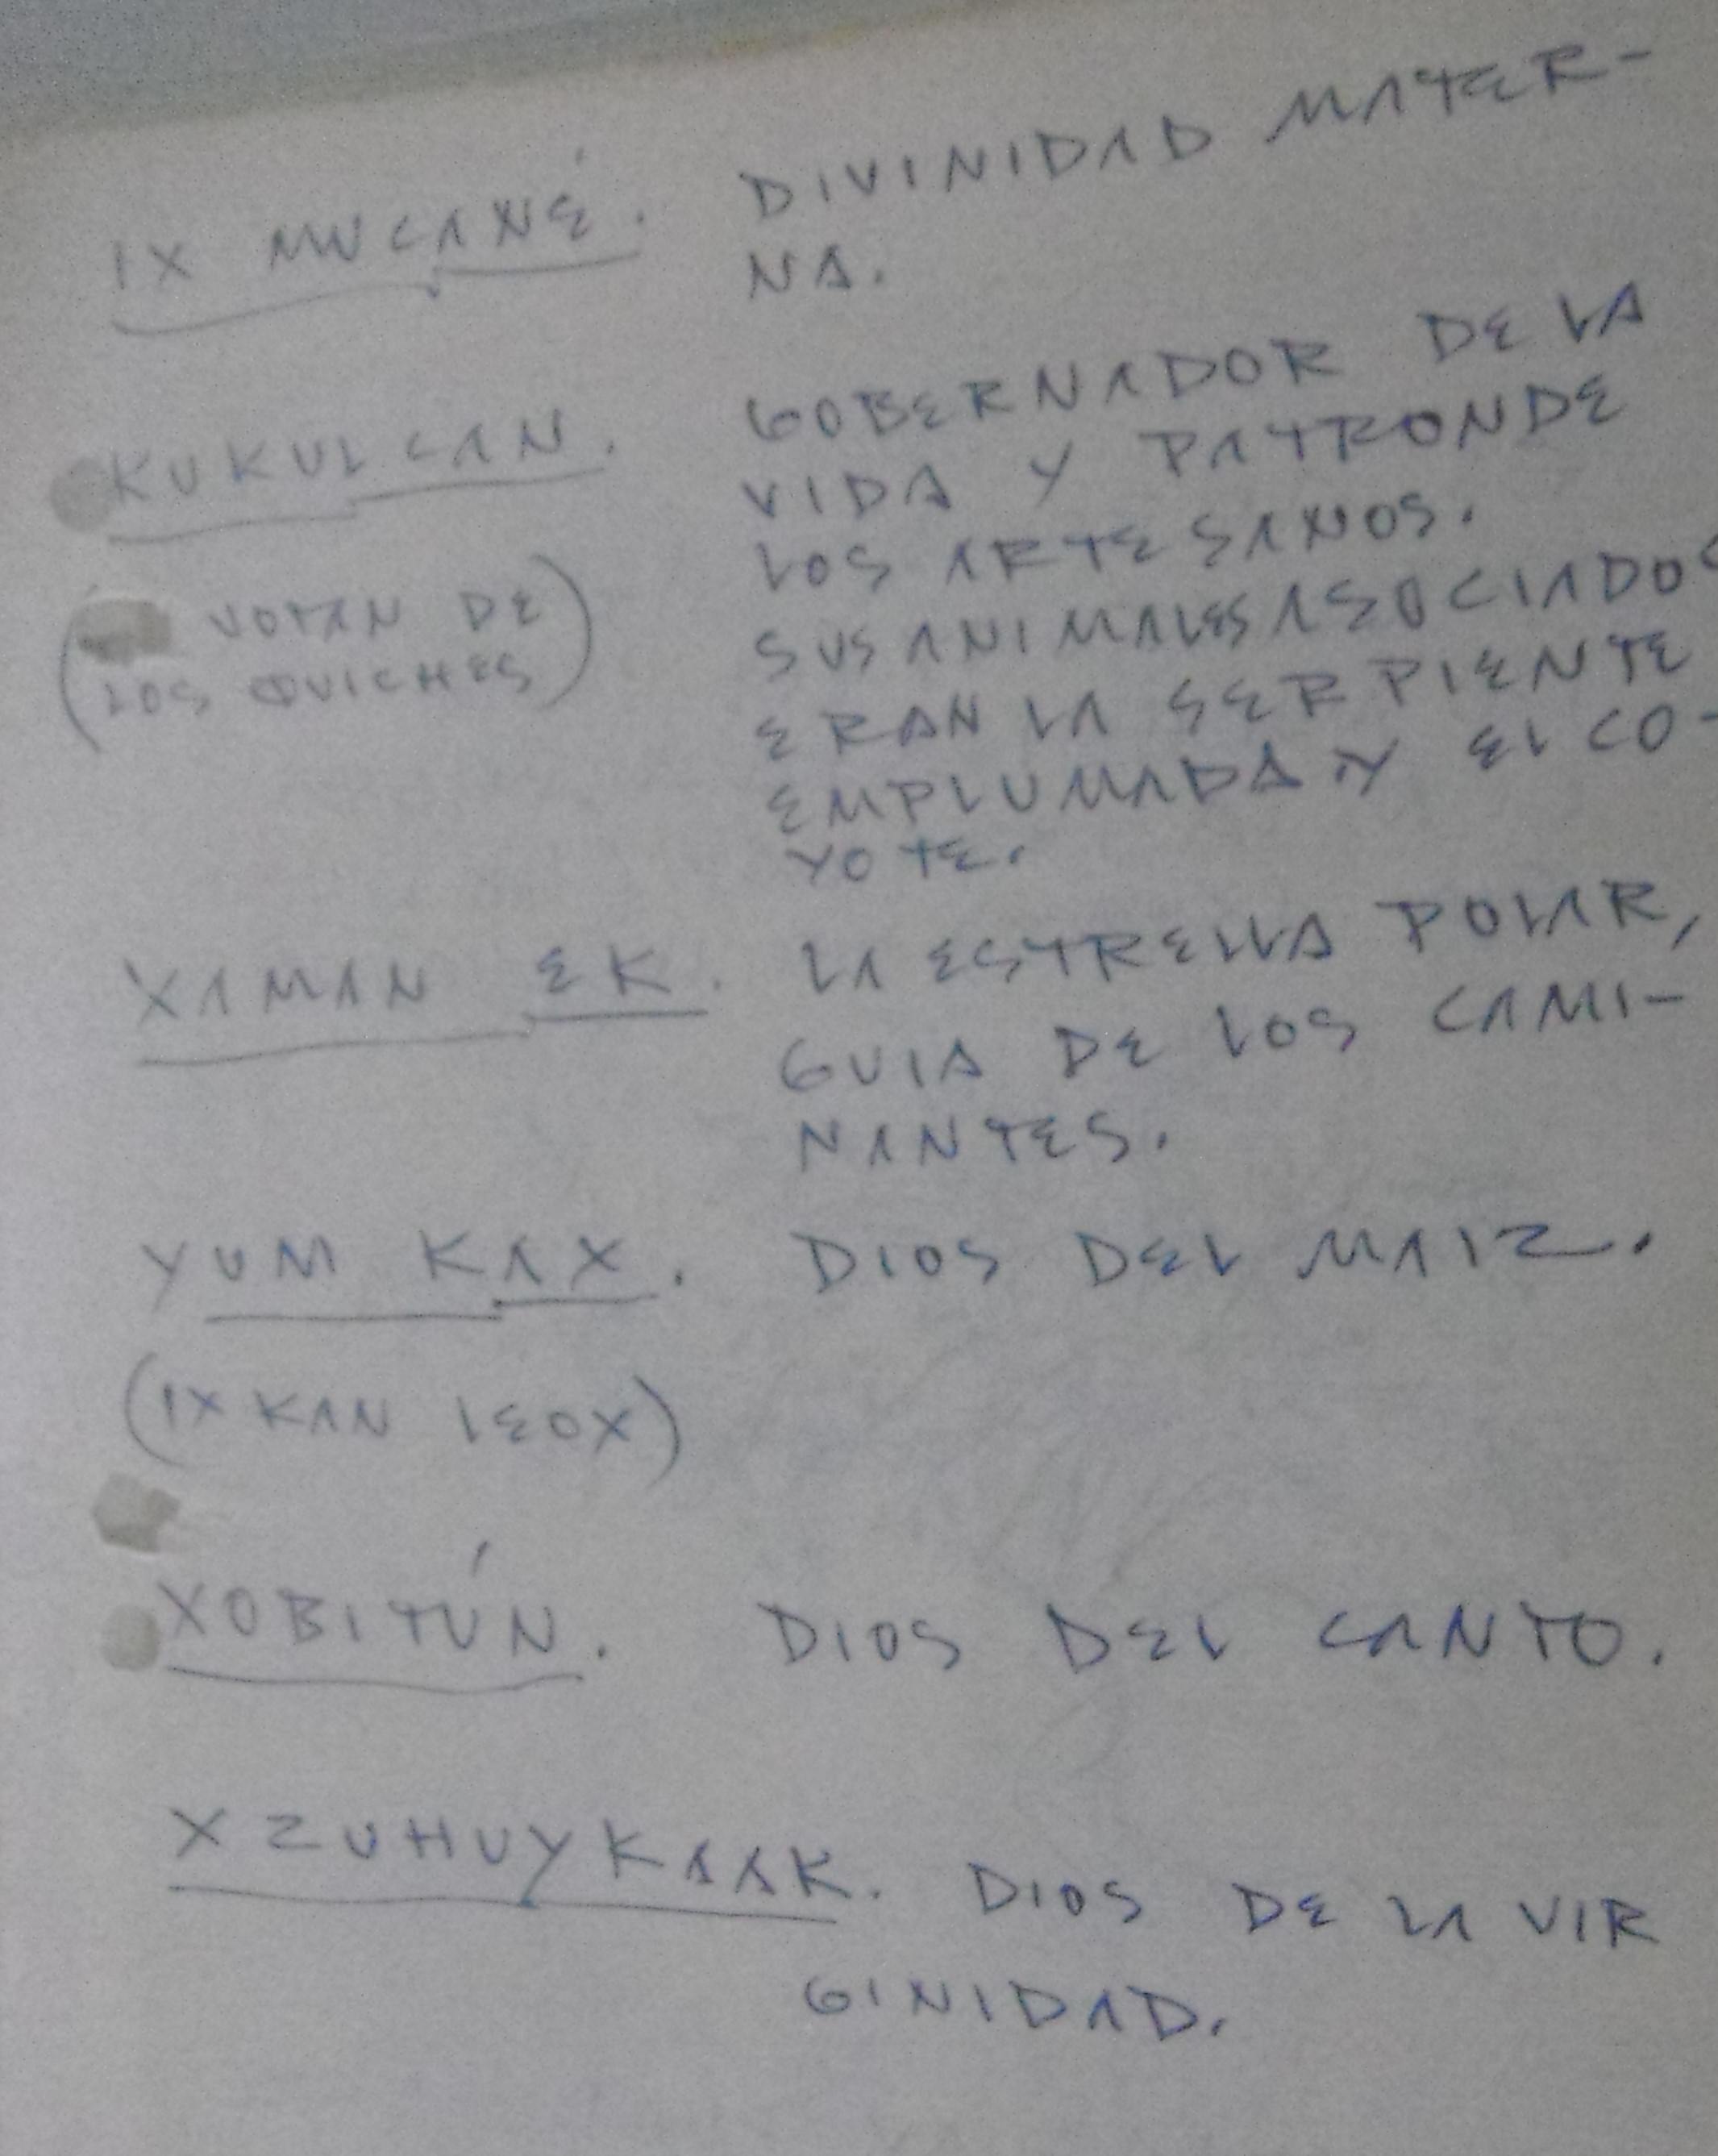 IX MUCANÉ. DIVINIDAD MATER-
NA.
KUKULCAN. GOBERNADOR DE LA
VIDA Y PATRON DE
LOS ARTESANOS.
(VOTAN DE
LOS QUICHES)
SUS ANIMALES ASOCIADOS
ERAN LA SERPIENTE
EMPLUMADA Y EL CO-
YOTE.
XAMAN EK. LA ESTRELLA POLAR,
GUIA DE LOS CAMI-
NANTES.
YUM KAX. DIOS DEL MAIZ.
(IX KAN LEOX)
XOBITÚN. DIOS DEL CANTO.
XZUHUYKAAK. DIOS DE LA VIR
GINIDAD.